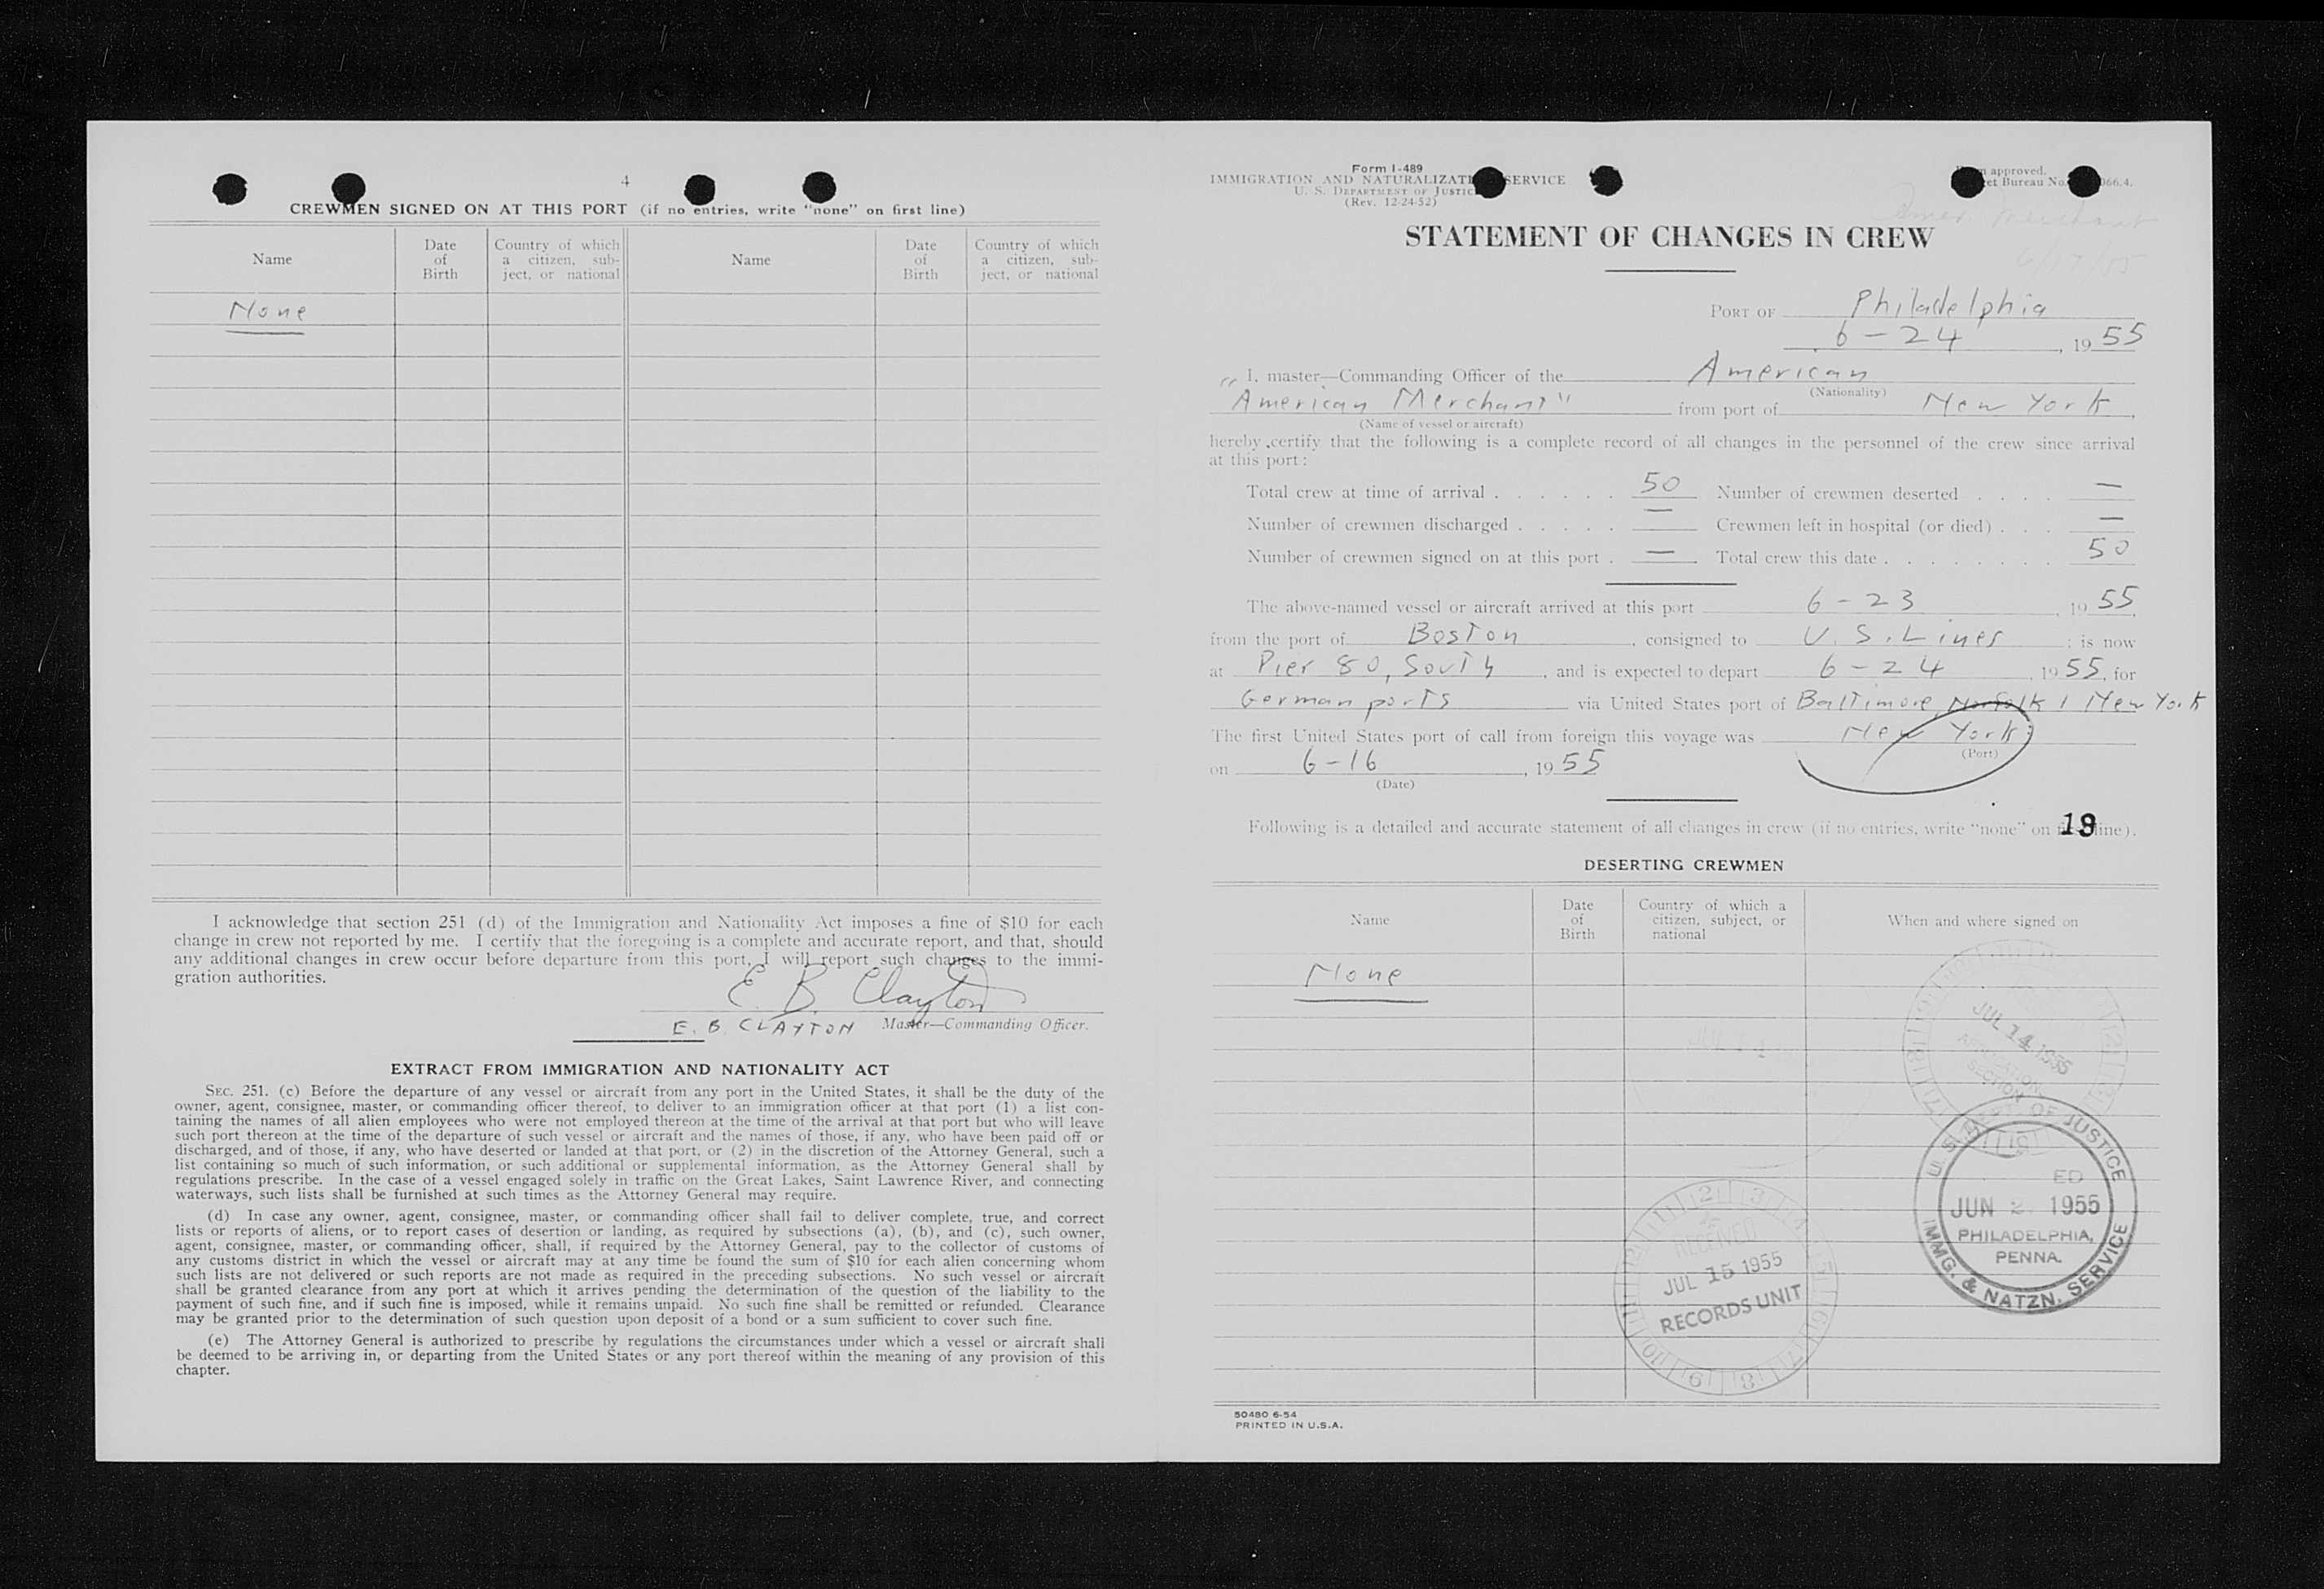 4
CREWMEN SIGNED ON AT THIS PORT (if no entries, write "none" on first line)
Name
Date of Birth
Country of which a citizen, subject, or national
Name
Date of Birth
Country of which a citizen, subject, or national
None
I acknowledge that section 251 (d) of the Immigration and Nationality Act imposes a fine of $10 for each
change in crew not reported by me. I certify that the foregoing is a complete and accurate report, and that, should
any additional changes in crew occur before departure from this port, I will report such changes to the immi-
gration authorities.
E. B. Clayton
E. B. CLAYTON Master—Commanding Officer.
EXTRACT FROM IMMIGRATION AND NATIONALITY ACT
SEC. 251. (c) Before the departure of any vessel or aircraft from any port in the United States, it shall be the duty of the
owner, agent, consignee, master, or commanding officer thereof, to deliver to an immigration officer at that port (1) a list con-
taining the names of all alien employees who were not employed thereon at the time of the arrival at that port but who will leave
such port thereon at the time of the departure of such vessel or aircraft and the names of those, if any, who have been paid off or
discharged, and of those, if any, who have deserted or landed at that port, or (2) in the discretion of the Attorney General, such a
list containing so much of such information, or such additional or supplemental information, as the Attorney General shall by
regulations prescribe. In the case of a vessel engaged solely in traffic on the Great Lakes, Saint Lawrence River, and connecting
waterways, such lists shall be furnished at such times as the Attorney General may require.
(d) In case any owner, agent, consignee, master, or commanding officer shall fail to deliver complete, true, and correct
lists or reports of aliens, or to report cases of desertion or landing, as required by subsections (a), (b), and (c), such owner,
agent, consignee, master, or commanding officer, shall, if required by the Attorney General, pay to the collector of customs of
any customs district in which the vessel or aircraft may at any time be found the sum of $10 for each alien concerning whom
such lists are not delivered or such reports are not made as required in the preceding subsections. No such vessel or aircraft
shall be granted clearance from any port at which it arrives pending the determination of the question of the liability to the
payment of such fine, and if such fine is imposed, while it remains unpaid. No such fine shall be remitted or refunded. Clearance
may be granted prior to the determination of such question upon deposit of a bond or a sum sufficient to cover such fine.
(e) The Attorney General is authorized to prescribe by regulations the circumstances under which a vessel or aircraft shall
be deemed to be arriving in, or departing from the United States or any port thereof within the meaning of any provision of this
chapter.
Form I-489
IMMIGRATION AND NATURALIZATION SERVICE
U. S. DEPARTMENT OF JUSTICE
(Rev. 12-24-52)
approved.
Bureau No. 066.4.
Amer Merchant
6/17/55
STATEMENT OF CHANGES IN CREW
PORT OF Philadelphia
6-24, 1955
I, master—Commanding Officer of the American
(Nationality)
"American Merchant" from port of New York,
(Name of vessel or aircraft)
hereby certify that the following is a complete record of all changes in the personnel of the crew since arrival
at this port:
Total crew at time of arrival . . . . . . 50 Number of crewmen deserted . . . . —
Number of crewmen discharged . . . . . — Crewmen left in hospital (or died) . . . —
Number of crewmen signed on at this port . — Total crew this date . . . . . . . . 50
The above-named vessel or aircraft arrived at this port 6-23, 1955,
from the port of Boston, consigned to U.S. Lines; is now
at Pier 80, South, and is expected to depart 6-24, 1955, for
German ports via United States port of Baltimore, Norfolk / New York
The first United States port of call from foreign this voyage was New York,
(Port)
on 6-16, 1955
(Date)
Following is a detailed and accurate statement of all changes in crew (if no entries, write "none" on line).
19
DESERTING CREWMEN
Name
Date of Birth
Country of which a citizen, subject, or national
When and where signed on
None
JUL 14 1955
SECTION
U. S. DEPT. OF JUSTICE
JUN 2 1955
PHILADELPHIA,
PENNA.
IMMG. & NATZN. SERVICE
RECEIVED
JUL 15 1955
RECORDS UNIT
50480 6-54
PRINTED IN U.S.A.